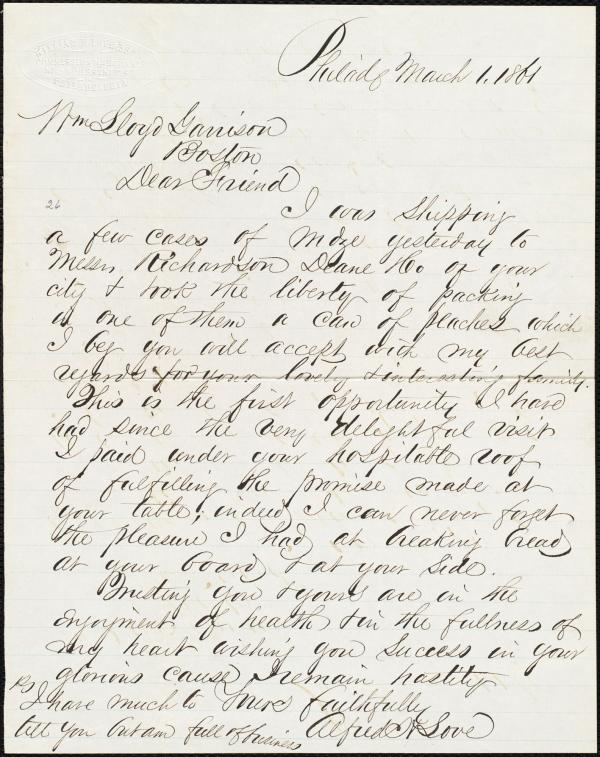 Philada March 1. 1861
Wm Lloyd Garrison
Boston
Dear Friend
26
I was shipping
a few cases of mdze yesterday to
Messrs Richardson Deane & Co of your
city & took the liberty of packing
in one of them a can of peaches which
I beg you will accept with my best
regards for your lovely & interesting family.
This is the first opportunity I have
had since the very delightful visit
I paid under your hospitable roof
of fulfilling the promise made at
your table; indeed I can never forget
the pleasure I had at breaking bread
at your board & at your side.
Trusting you & yours are in the
enjoyment of health & in the fullness of
my heart wishing you success in your
glorious cause I remain hastily
Yours faithfully
Alfred H Love
PS I have much to
tell you but am full of business